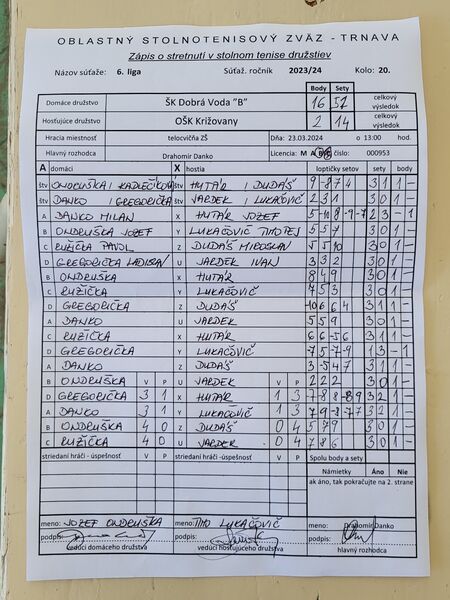 OBLASTNÝ STOLNOTENISOVÝ ZVÄZ - TRNAVA
Zápis o stretnutí v stolnom tenise družstiev
Názov súťaže: 6. liga Súťaž. ročník 2023/24 Kolo: 20.
Body Sety
Domáce družstvo ŠK Dobrá Voda "B" 16 51 celkový výsledok
Hosťujúce družstvo OŠK Križovany 2 14 celkový výsledok
Hracia miestnosť telocvičňa ZŠ Dňa: 23.03.2024 o 13:00 hod.
Hlavný rozhodca Drahomír Danko Licencia: M A B C číslo: 000953
A domáci X hostia loptičky setov sety body
štv ONDRUŠKA / KADLEČÍKOVÁ štv HUTÁR / DUDÁŠ 9 -8 7 4 3 1 1 -
štv DANKO / GREGORIČKA štv VARDEK / LUKAČOVIČ 2 3 1 3 0 1 -
A DANKO MILAN X HUTÁR JOZEF 5 -10 8 -9 -7 2 3 - 1
B ONDRUŠKA JOZEF Y LUKAČOVIČ TIMOTEJ 5 5 7 3 0 1 -
C RUŽIČKA PAVOL Z DUDÁŠ MIROSLAV 5 5 10 3 0 1 -
D GREGORIČKA LADISLAV U VARDEK IVAN 3 3 2 3 0 1 -
B ONDRUŠKA X HUTÁR 8 4 9 3 0 1 -
C RUŽIČKA Y LUKAČOVIČ 7 5 3 3 0 1 -
D GREGORIČKA Z DUDÁŠ -10 6 6 4 3 1 1 -
A DANKO U VARDEK 5 5 9 3 0 1 -
C RUŽIČKA X HUTÁR 6 6 -5 6 3 1 1 -
D GREGORIČKA Y LUKAČOVIČ -7 5 -7 -9 1 3 - 1
A DANKO Z DUDÁŠ 3 -5 4 7 3 1 1 -
B ONDRUŠKA V P U VARDEK V P 2 2 2 3 0 1 -
D GREGORIČKA 3 1 X HUTÁR 1 3 7 -8 8 -8 9 3 2 1 -
A DANKO 3 1 Y LUKAČOVIČ 1 3 7 9 -8 -7 7 3 2 1 -
B ONDRUŠKA 4 0 Z DUDÁŠ 0 4 5 7 9 3 0 1 -
C RUŽIČKA 4 0 U VARDEK 0 4 7 8 6 3 0 1 -
striedaní hráči - úspešnosť V P striedaní hráči -úspešnosť V P Spolu body a sety
Námietky Áno Nie
ak áno, tak pokračujte na 2. strane
meno: JOZEF ONDRUŠKA meno: TIMO LUKAČOVIČ meno: Drahomír Danko
podpis: podpis: podpis:
vedúci domáceho družstva vedúci hosťujúceho družstva hlavný rozhodca